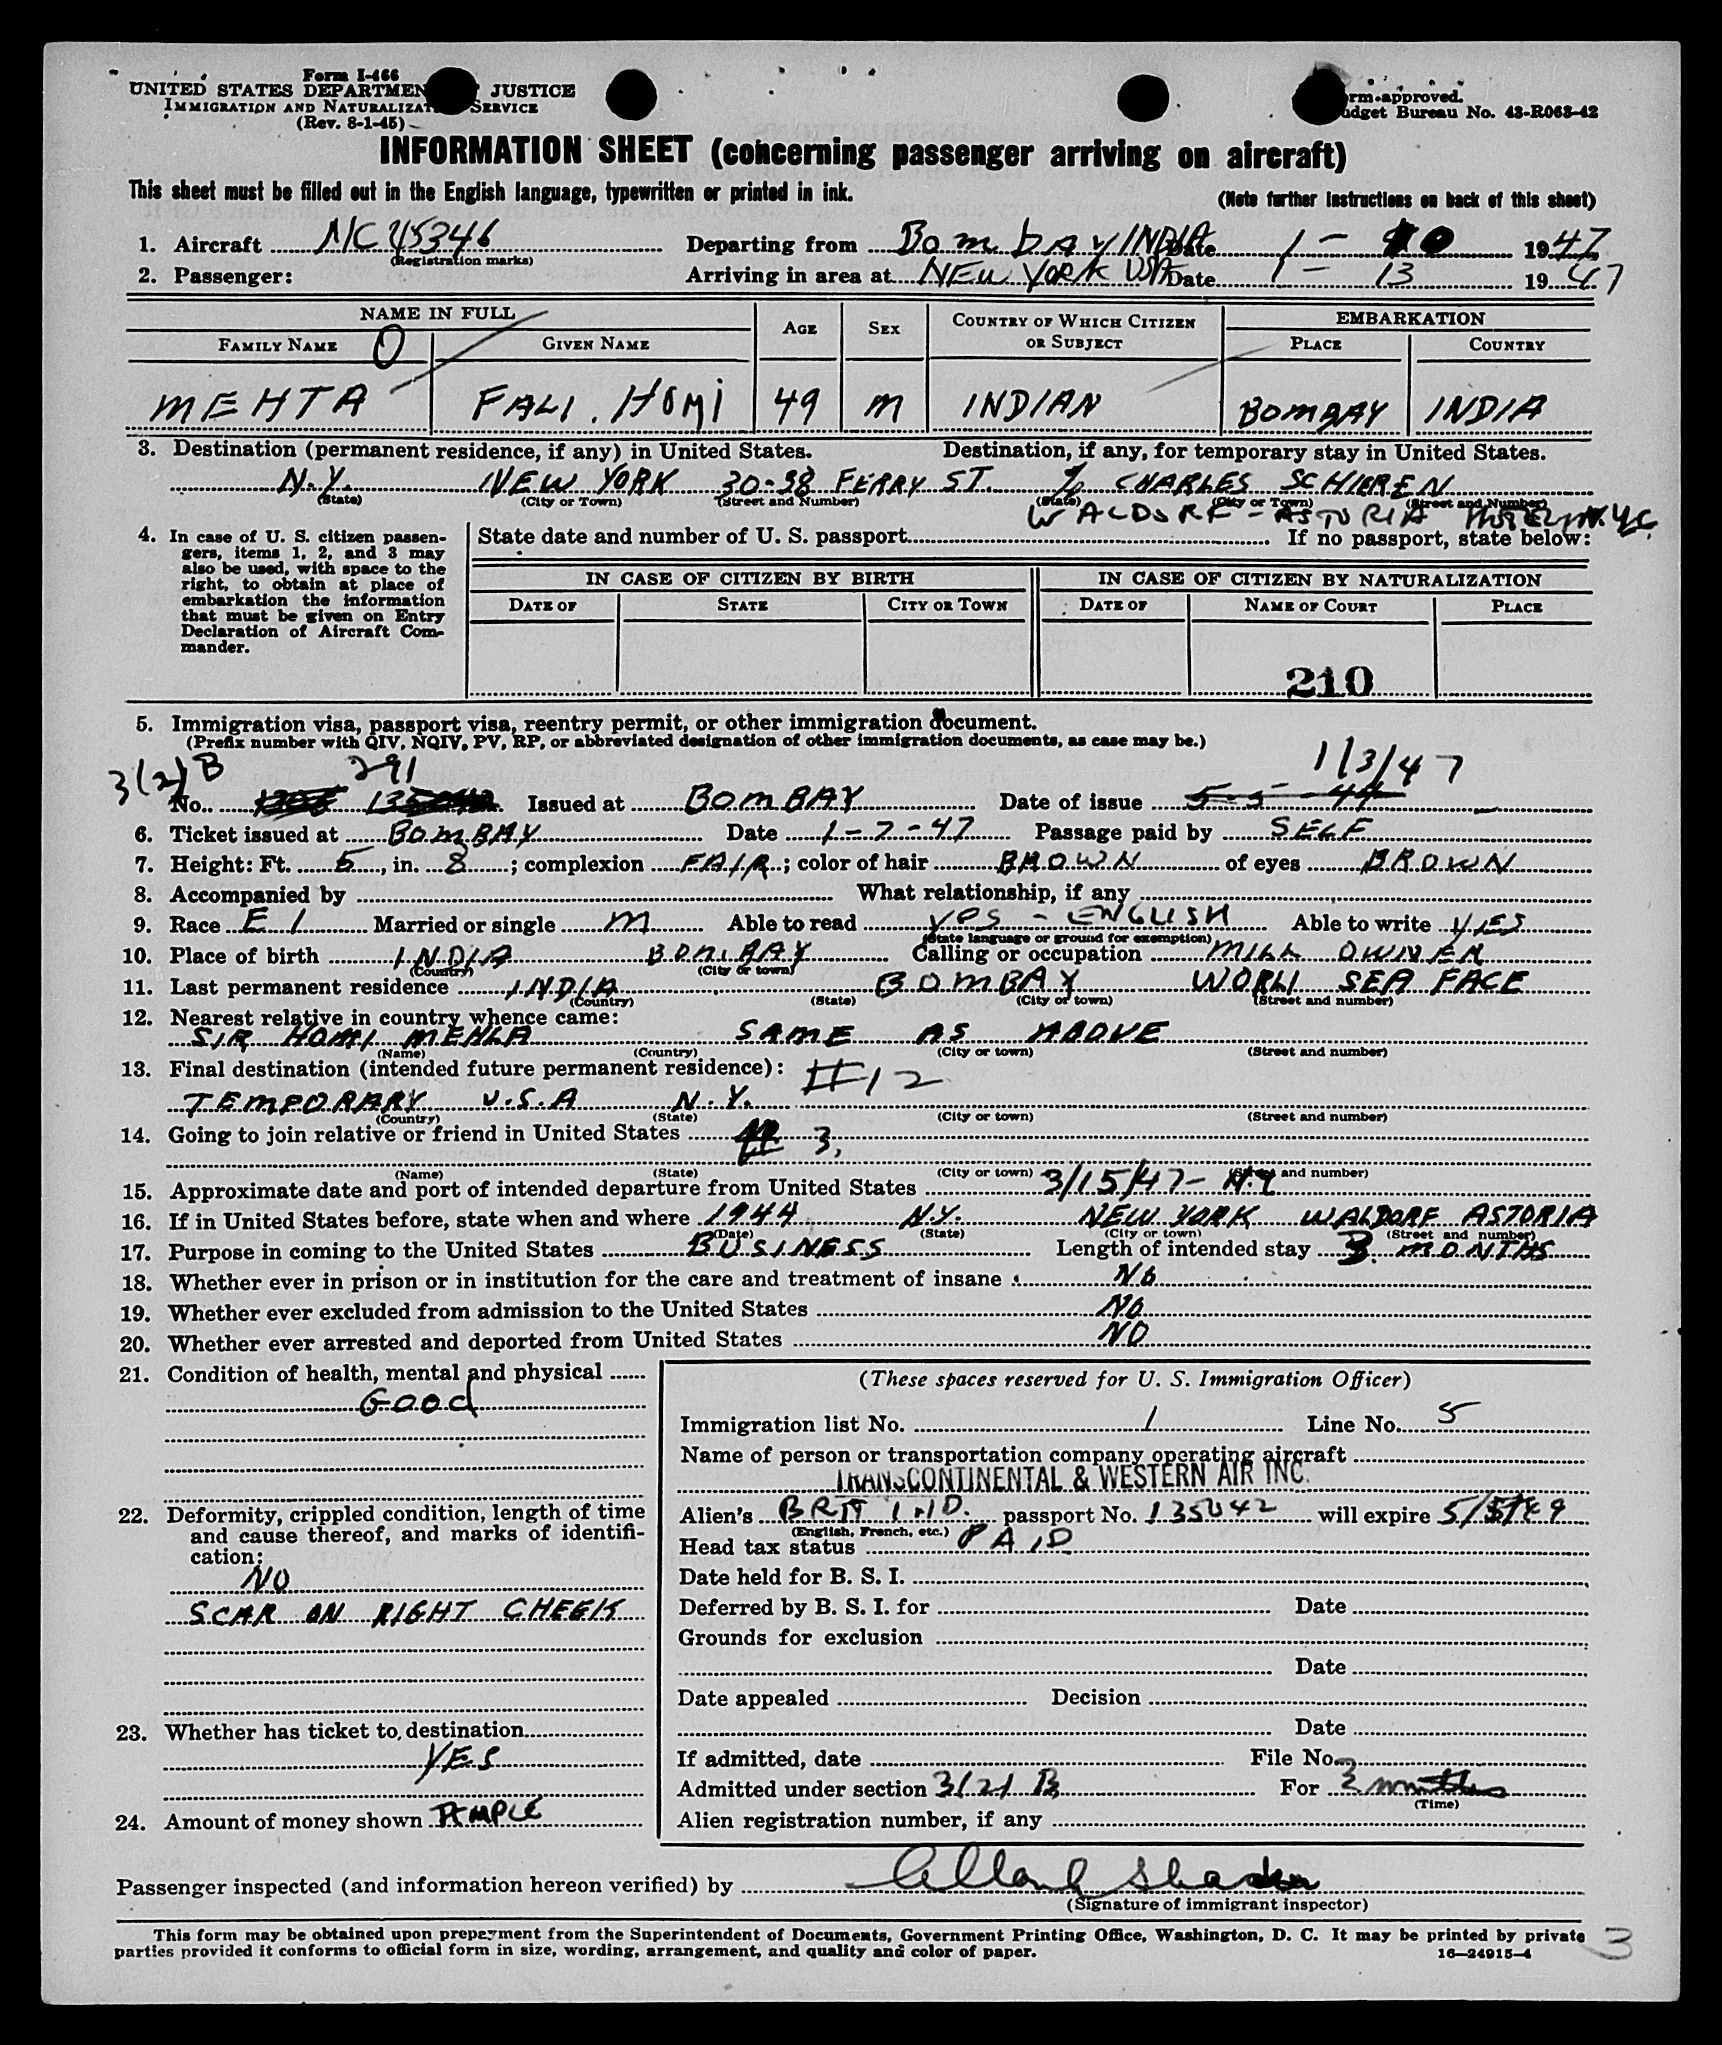 Form I-466
UNITED STATES DEPARTMEN JUSTICE
IMMIGRATION AND NATURALIZAT SERVICE
(Rev. 8-1-45)
rm approved.
udget Bureau No. 43-R063-42
INFORMATION SHEET (concerning passenger arriving on aircraft)
This sheet must be filled out in the English language, typewritten or printed in ink.
(Note further instructions on back of this sheet)
1. Aircraft NC 45346 Departing from BOMBAY INDIA Date 1 - 10 1947
(Registration marks)
2. Passenger: Arriving in area at NEW YORK Date 1 - 13 1947
NAME IN FULL AGE SEX COUNTRY OF WHICH CITIZEN OR SUBJECT EMBARKATION
FAMILY NAME GIVEN NAME PLACE COUNTRY
MEHTA FALI. HOMI 49 M INDIAN BOMBAY INDIA
3. Destination (permanent residence, if any) in United States. Destination, if any, for temporary stay in United States.
N.Y. NEW YORK 30-38 FERRY ST. % CHARLES SCHIEREN
(State) (City or Town) (Street and Number) (State) (City or Town) (Street and Number)
WALDORF - ASTORIA HOTEL, N.Y.C.
4. In case of U. S. citizen passengers, items 1, 2, and 3 may also be used, with space to the right, to obtain at place of embarkation the information that must be given on Entry Declaration of Aircraft Commander.
State date and number of U. S. passport If no passport, state below:
IN CASE OF CITIZEN BY BIRTH IN CASE OF CITIZEN BY NATURALIZATION
DATE OF STATE CITY OR TOWN DATE OF NAME OF COURT PLACE
210
5. Immigration visa, passport visa, reentry permit, or other immigration document.
(Prefix number with QIV, NQIV, PV, RP, or abbreviated designation of other immigration documents, as case may be.)
3(2)B 291 1/3/47
No. Issued at BOMBAY Date of issue 5-5-44
6. Ticket issued at BOMBAY Date 1-7-47 Passage paid by SELF
7. Height: Ft. 5, in. 8; complexion FAIR; color of hair BROWN of eyes BROWN
8. Accompanied by What relationship, if any
9. Race E I Married or single M Able to read YES - ENGLISH Able to write YES
(State language or ground for exemption)
10. Place of birth INDIA BOMBAY Calling or occupation MILL OWNER
(Country) (City or town)
11. Last permanent residence INDIA BOMBAY WORLI SEA FACE
(Country) (State) (City or town) (Street and number)
12. Nearest relative in country whence came:
SIR HOMI MEHTA SAME AS ABOVE
(Name) (Country) (City or town) (Street and number)
13. Final destination (intended future permanent residence): #12
TEMPORARY U.S.A N.Y.
(Country) (State) (City or town) (Street and number)
14. Going to join relative or friend in United States 3,
(Name) (State) (City or town) (Street and number)
15. Approximate date and port of intended departure from United States 3/15/47 - N.Y
16. If in United States before, state when and where 1944 N.Y. NEW YORK WALDORF ASTORIA
(Date) (State) (City or town) (Street and number)
17. Purpose in coming to the United States BUSINESS Length of intended stay 3. MONTHS
18. Whether ever in prison or in institution for the care and treatment of insane NO
19. Whether ever excluded from admission to the United States NO
20. Whether ever arrested and deported from United States NO
21. Condition of health, mental and physical
Good
22. Deformity, crippled condition, length of time and cause thereof, and marks of identification:
NO
SCAR ON RIGHT CHEEK
23. Whether has ticket to destination
YES
24. Amount of money shown AMPLE
(These spaces reserved for U. S. Immigration Officer)
Immigration list No. 1 Line No. 5
Name of person or transportation company operating aircraft
TRANSCONTINENTAL & WESTERN AIR INC.
Alien's BRIT IND. passport No. 135042 will expire 5/5/49
(English, French, etc.)
Head tax status PAID
Date held for B. S. I.
Deferred by B. S. I. for Date
Grounds for exclusion
Date
Date appealed Decision
Date
If admitted, date File No.
Admitted under section 3(2) B For 3 months
(Time)
Alien registration number, if any
Passenger inspected (and information hereon verified) by
(Signature of immigrant inspector)
This form may be obtained upon prepayment from the Superintendent of Documents, Government Printing Office, Washington, D. C. It may be printed by private
parties provided it conforms to official form in size, wording, arrangement, and quality and color of paper.
16—24915-4
3